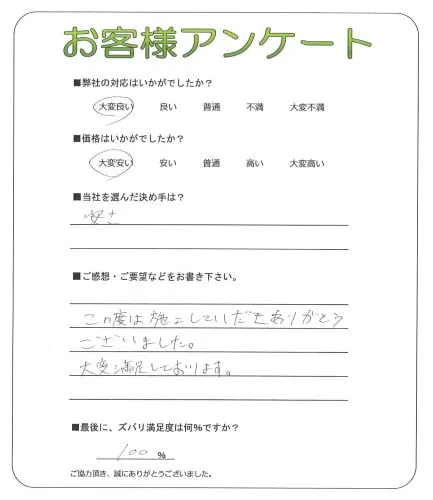 お客様アンケート
■弊社の対応はいかがでしたか？
大変良い 良い 普通 不満 大変不満
■価格はいかがでしたか？
大変安い 安い 普通 高い 大変高い
■当社を選んだ決め手は？
安さ
■ご感想・ご要望などをお書き下さい。
この度は施工していだきありがとう
ございました。
大変満足しております。
■最後に、ズバリ満足度は何％ですか？
100 ％
ご協力頂き、誠にありがとうございました。